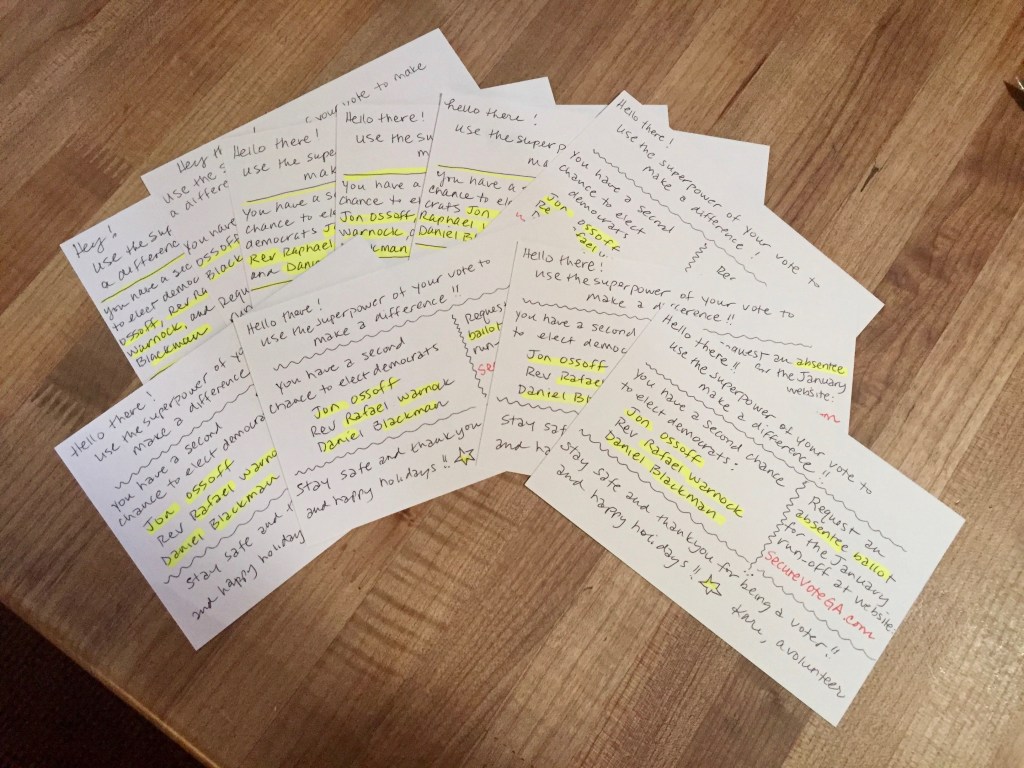 your vote to make
Hey
use the
a differe
Hello there!
use the super
mak
You have a s
chance to
democrats J
Rev Raphae
and Dani
Hello there!
use the su
m
You have a
chance to el
Jon Ossoff,
Warnock, a
Blackman
hello there!
use the superp
ma
you have a s
chance to el
crats Jon
Raphael W
Daniel Bl
Hello there!
use the superpower of your vote to
make a difference!
You have a second
chance to elect
democrats
Jon Ossoff
Hey!
use the sup
a difference
you have a sec
to elect democ
Ossoff, Rev Ra
Warnock, and
Blackman
You have
Ossoff
Black
Requ
run
Hello there!
use the superpower of yo
make a difference
you have a second
chance to elect democrat
Jon Ossoff
Rev Rafael Warno
Daniel Blackman
stay safe and t
and happy holiday
Hello there!
use the superpower of your vote to
make a difference!!
you have a second
chance to elect democrats
Jon Ossoff
Rev Rafael Warnock
Daniel Blackman
Stay safe and thank you
and happy holidays!!
Reques
ballot
run-
se
Hello there!
use the superpower of your vote to
make a difference!!
you have a second
to elect democ
Jon Ossoff
Rev Rafae
Daniel Bl
Stay saf
and ha
quest an absentee
for the January
website:
Hello there!!
use the superpower of your vote to
make a difference!!
You have a second chance
to elect democrats:
Jon Ossoff
Rev Rafael Warnock
Daniel Blackman
Request an
absentee ballot
for the January
run-off at website:
SecureVoteGA.com
Stay safe and thank you for being a voter!!
and happy holidays!!
a volunteer